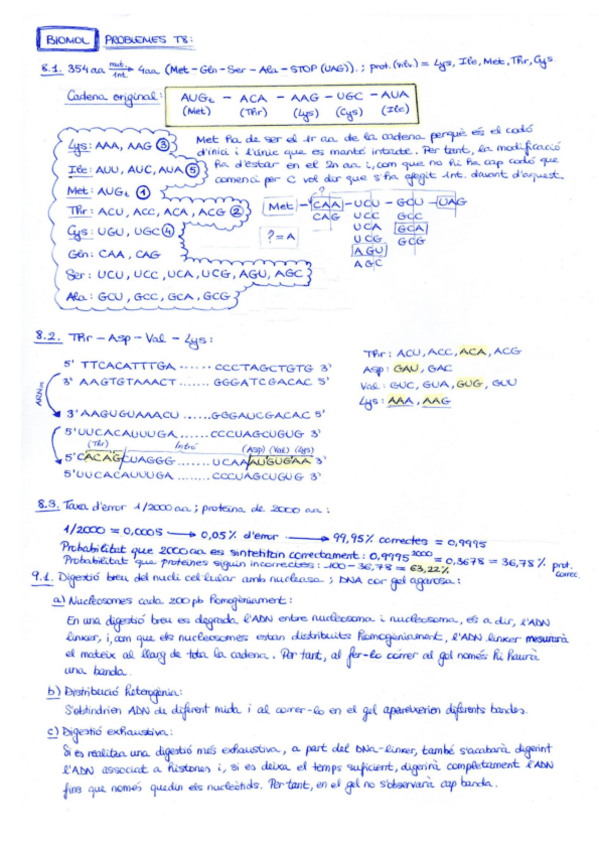 BIOMOL PROBLEMES T8:
8.1. 354aa mut. int. 4aa (Met-Gln-Ser-Ala-STOP (UAG)).; prot.(vilv.) = Lys, Ile, Met, Thr, Cys.
Cadena original: AUG - ACA - AAG - UGC - AUA
(Met) (Thr) (Lys) (Cys) (Ile)
Lys: AAA, AAG ③
Ile: AUU, AUC, AUA ⑤
Met: AUG ①
Thr: ACU, ACC, ACA, ACG ②
Cys: UGU, UGC ④
Gln: CAA, CAG
Ser: UCU, UCC, UCA, UCG, AGU, AGC
Ala: GCU, GCC, GCA, GCG
Met ha de ser el 1r aa de la cadena perquè és el codó
d'inici i l'únic que es manté intacte. Per tant, la modificació
ha d'estar en el 2n aa i, com que no hi ha cap codó que
comenci per C vol dir que s'ha afegit 1nt. davant d'aquest.
?
Met - CAA - UCU - GCU - UAG
CAG UCC GCC
? = A UCA GCA
UCG GCG
AGU
AGC
8.2. Thr - Asp - Val - Lys:
5' TTCACATTTGA ...... CCCTAGCTGTG 3'
3' AAGTGTAAACT ...... GGGATCGACAC 5'
ARNm
3' AAGUGUAAACU ...... GGGAUCGACAC 5'
5' UUCACAUUUGA ...... CCCUAGCUGUG 3'
(Thr) Intró (Asp) (Val) (Lys)
5' CACAGCUAGGG ....... UCAAAUGUGAA 3'
5' UUCACAUUUGA ...... CCCUAGCUGUG 3'
Thr: ACU, ACC, ACA, ACG
Asp: GAU, GAC
Val: GUC, GUA, GUG, GUU
Lys: AAA, AAG
8.3. Taxa d'error 1/2000 aa; proteïna de 2000 aa:
1/2000 = 0,0005 → 0,05% d'error → 99,95% correctes = 0,9995
Probabilitat que 2000aa es sintetitzin correctament: 0,9995²⁰⁰⁰ = 0,3678 = 36,78% prot. correc.
Probabilitat que proteïnes siguin incorrectes: 100 - 36,78 = 63,22%
9.1. Digestió breu del nucli cel·lular amb nucleasa; DNA cor gel agarosa:
a) Nucleosomes cada 200pb homogèniament:
En una digestió breu es degrada l'ADN entre nucleosoma i nucleosoma, és a dir, l'ADN
linker, i, com que els nucleosomes estan distribuïts homogèniament, l'ADN linker mesurarà
el mateix al llarg de tota la cadena. Per tant, al fer-lo córrer al gel només hi haurà
una banda.
b) Distribució heterogènia:
S'obtindrien ADN de diferent mida i al córrer-lo en el gel apareixerien diferents bandes.
c) Digestió exhaustiva:
Si es realitza una digestió més exhaustiva, a part del DNA-linker, també s'acabarà digerint
l'ADN associat a histones i, si es deixa el temps suficient, digerirà completament l'ADN
fins que només quedin els nucleòtids. Per tant, en el gel no s'observarà cap banda.